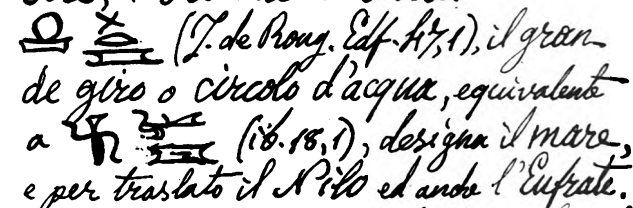 (J. de Roug. Edf. 47,1), il gran-
de giro o circolo d'acqua, equivalente
a (ib. 18,1), designa il mare,
e per traslato il Nilo ed anche l'Eufrate.